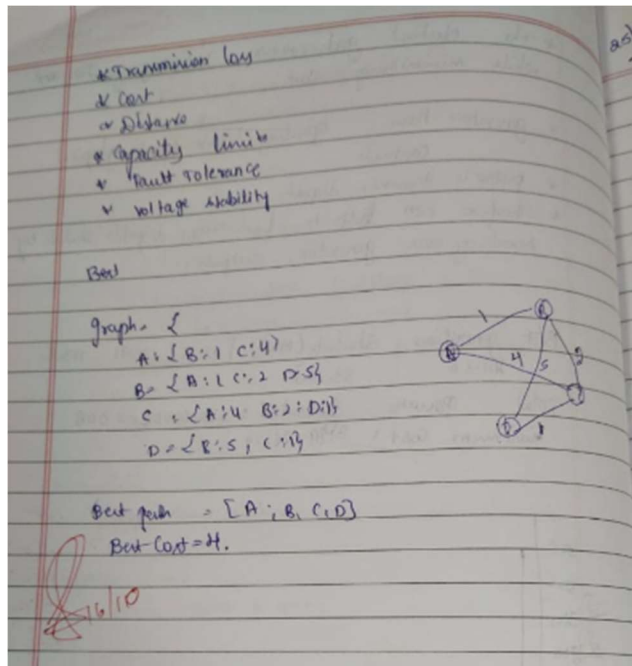 * Transmission loss
* Cost
* Distance
* Capacity limits
* Fault Tolerance
* voltage stability
Best
graph = {
A: {B:1 C:4}
B = {A:1 C:2 D:5}
C = {A:4 B:2 : D:1}
D = {B:5, C:1}
1
4
5
1
Best path = [A, B, C, D]
Best Cost = 4.
16/10